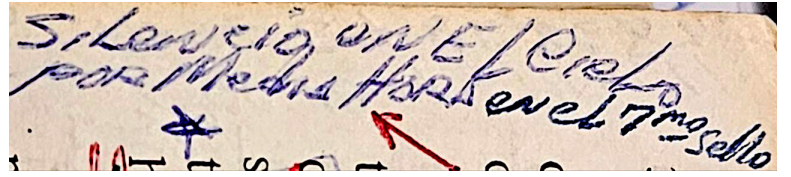 SiLenziO eN El CieLo
POR Media HORA en el 7mo Sello